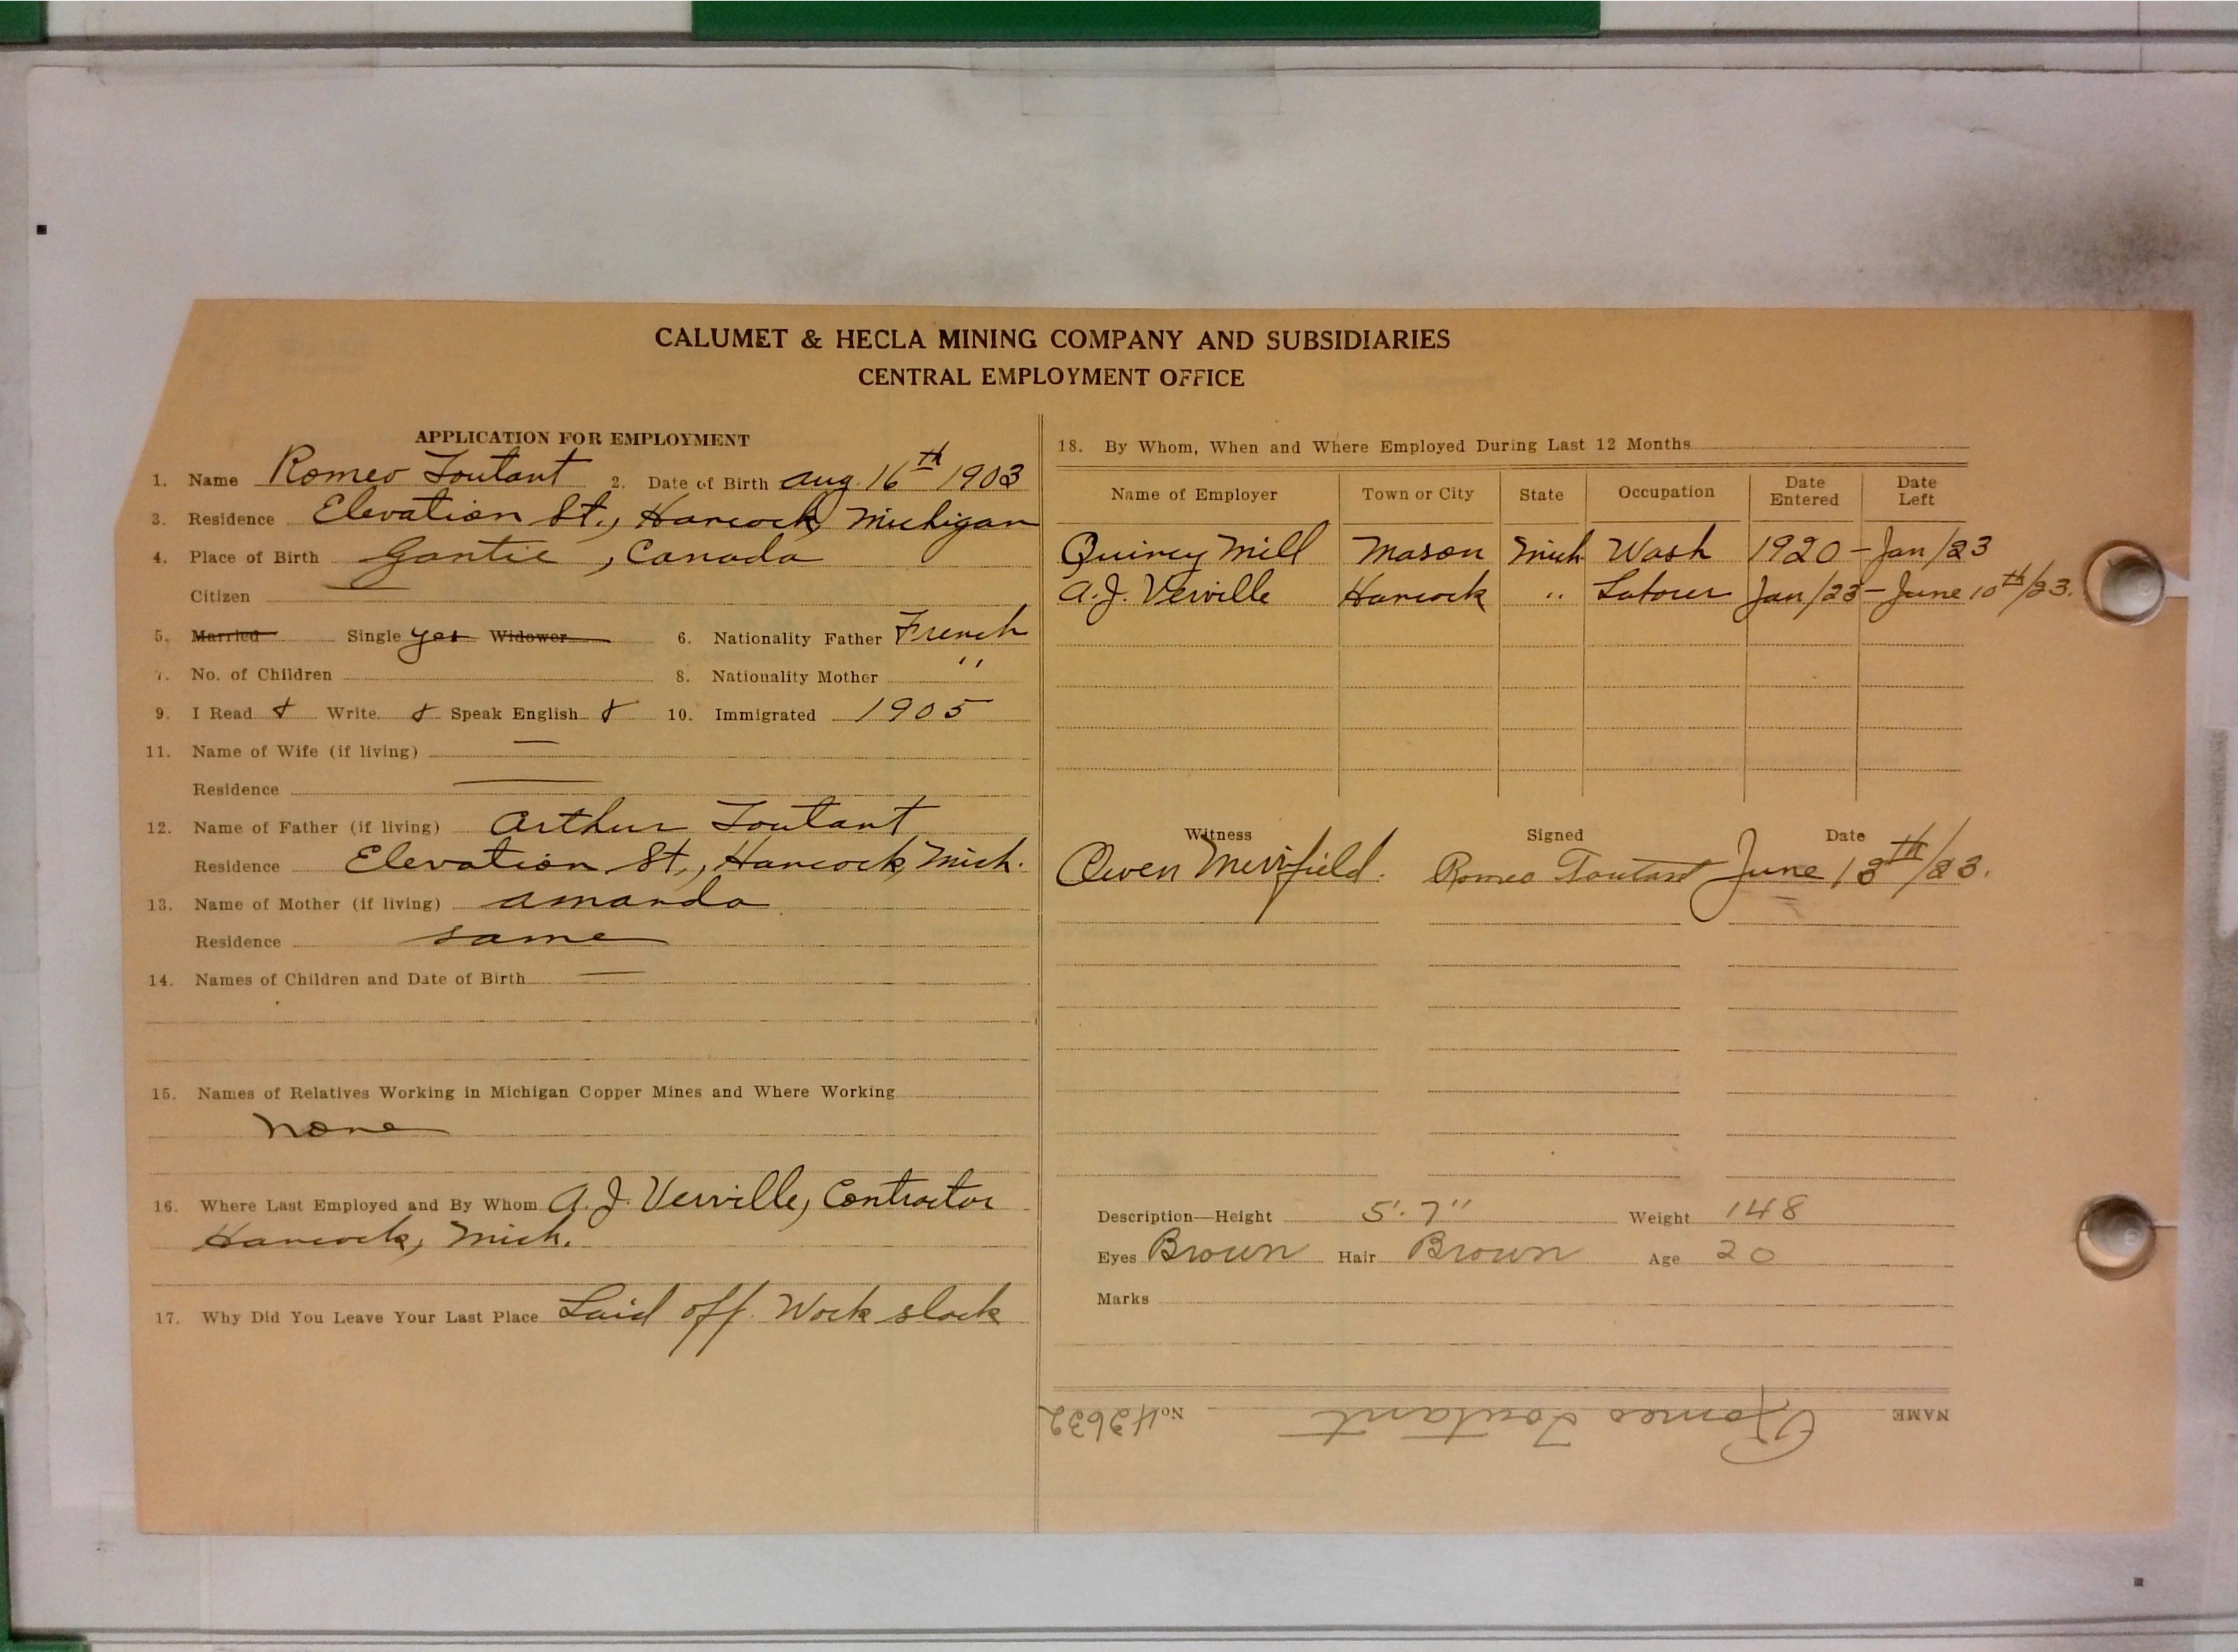 CALUMET & HECLA MINING COMPANY AND SUBSIDIARIES
CENTRAL EMPLOYMENT OFFICE
APPLICATION FOR EMPLOYMENT
1. Name Romeo Toutant 2. Date of Birth Aug. 16th 1903
3. Residence Elevation St., Hancock, Michigan
4. Place of Birth Gantic, Canada
Citizen
5. Married Single yes Widower 6. Nationality Father French
7. No. of Children 8. Nationality Mother "
9. I Read Write Speak English 10. Immigrated 1905
11. Name of Wife (if living) —
Residence —
12. Name of Father (if living) Arthur Toutant
Residence Elevation St., Hancock, Mich.
13. Name of Mother (if living) Amanda
Residence same
14. Names of Children and Date of Birth —
15. Names of Relatives Working in Michigan Copper Mines and Where Working
none
16. Where Last Employed and By Whom A. J. Verville, Contractor
Hancock, Mich.
17. Why Did You Leave Your Last Place Laid off. Work slack
18. By Whom, When and Where Employed During Last 12 Months
Name of Employer Town or City State Occupation Date Entered Date Left
Quincy Mill Mason Mich Wash 1920 - Jan/23
A. J. Verville Hancock " Laborer Jan/23 - June 10th/23.
Witness Signed Date
Owen Merrifield. Romeo Toutant June 13th/23.
Description—Height 5'. 7" Weight 148
Eyes Brown Hair Brown Age 20
Marks
NAME Romeo Toutant No. 42632